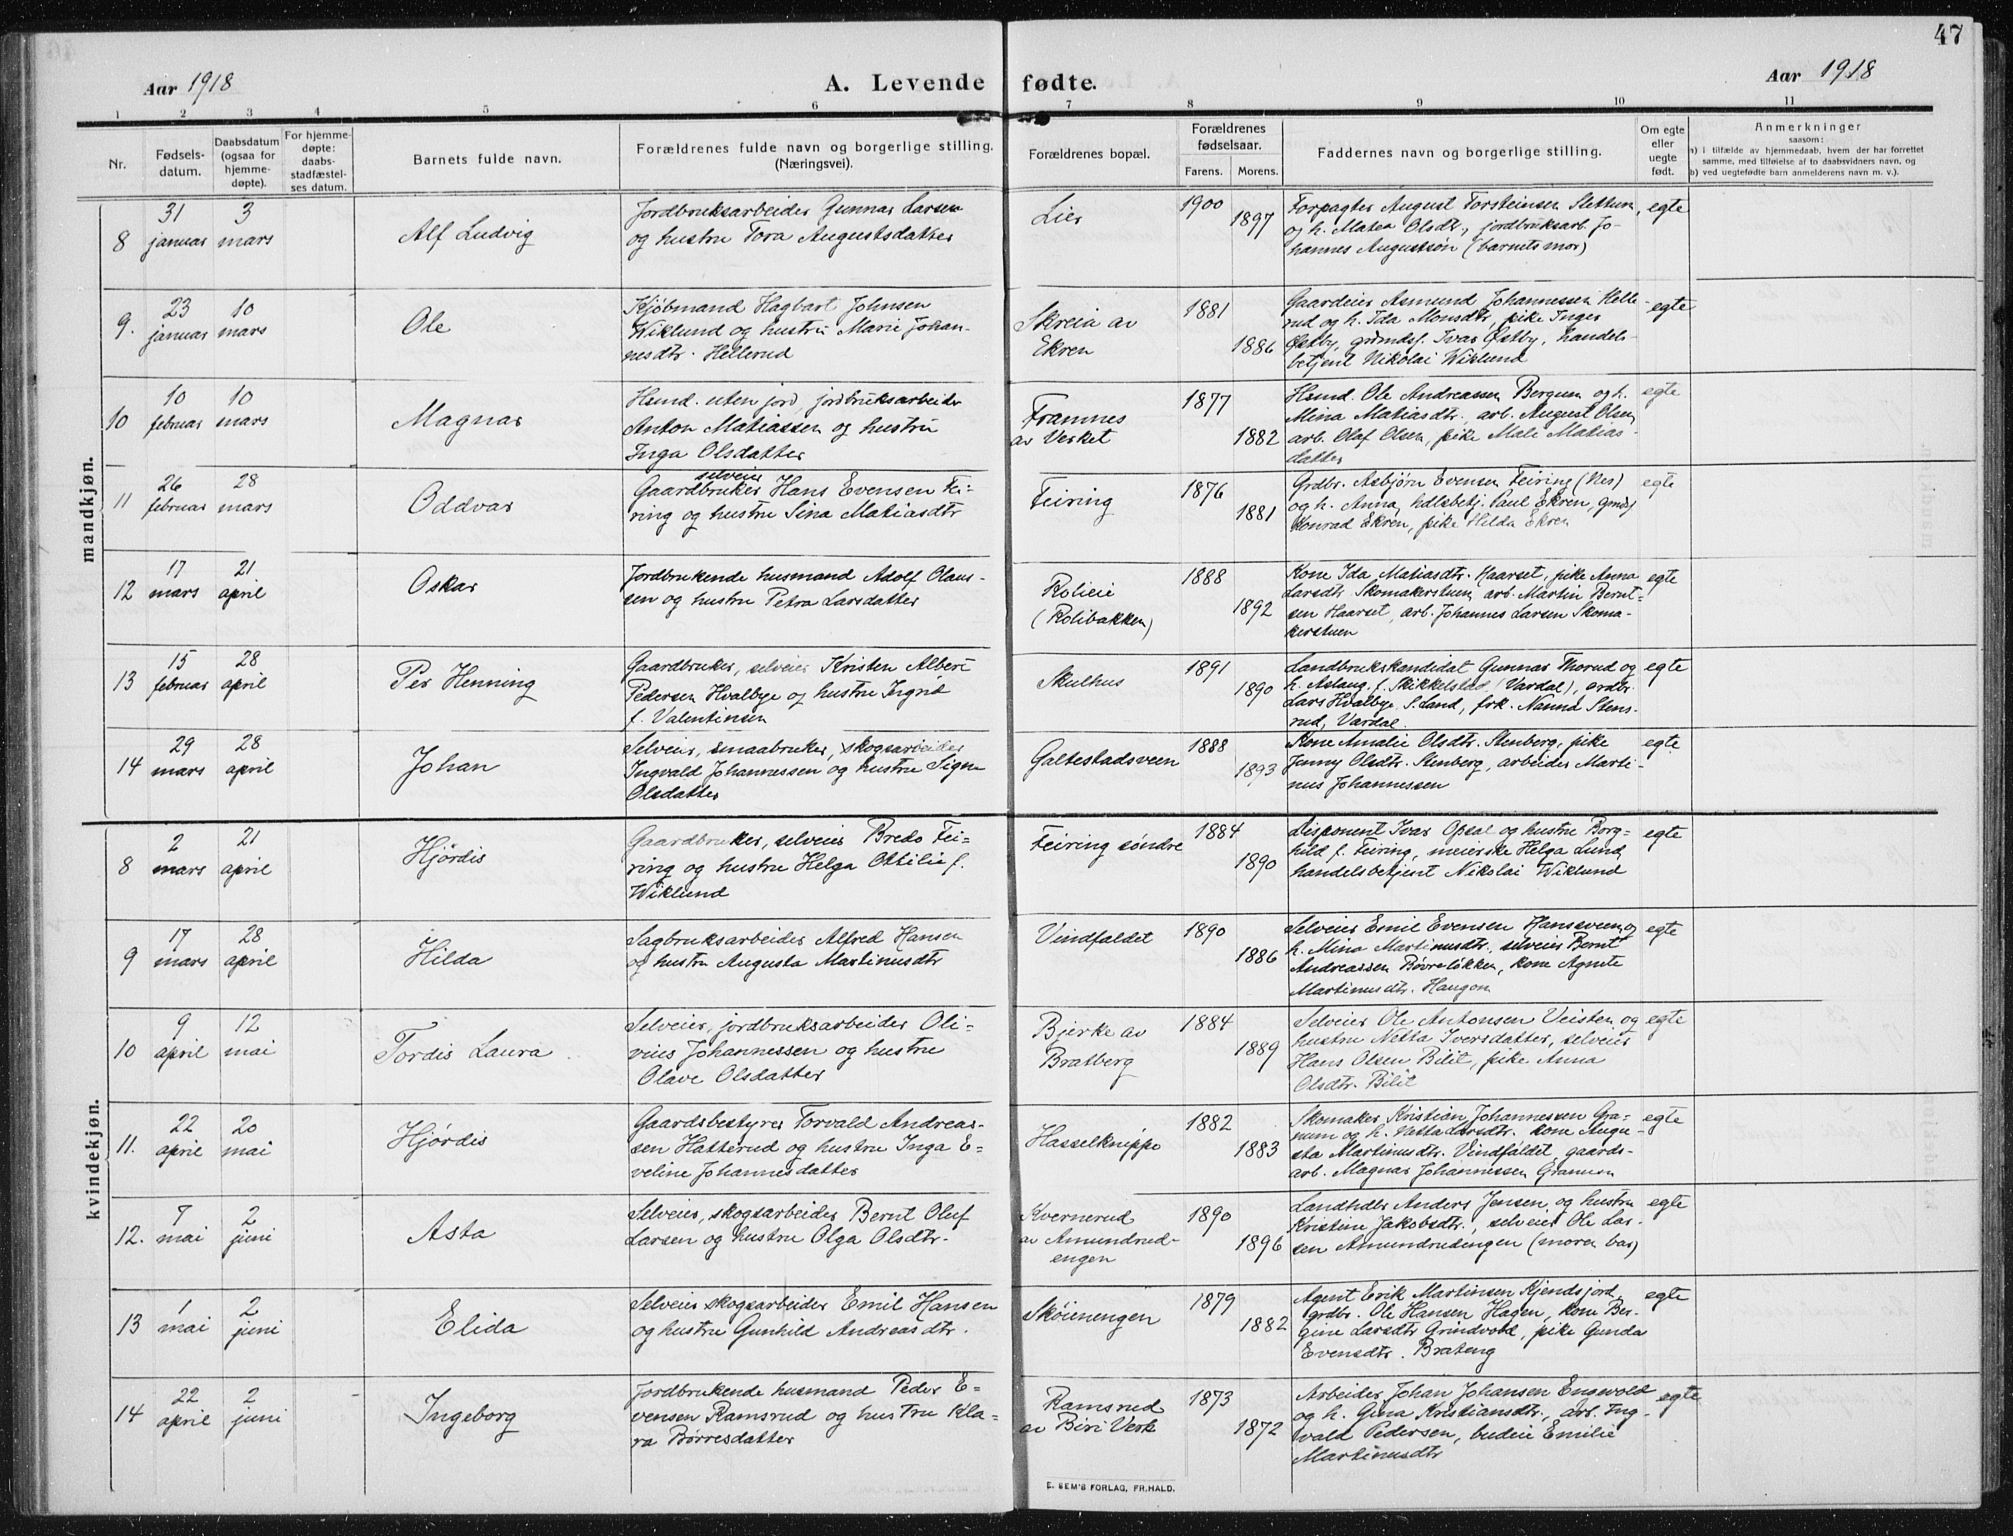 47
Aar 1918
A. Levende fødte.
Aar 1918
1 2 3 4 5 6 7 8 9 10 11
Nr.
Fødsels-
datum.
Daabsdatum
(ogsaa for
hjemme-
døpte).
For hjemme-
døpte:
daabs-
stadfæstel-
ses datum.
Barnets fulde navn.
Forældrenes fulde navn og borgerlige stilling.
(Næringsvei).
Forældrenes bopæl.
Forældrenes
fødselsaar.
Farens. Morens.
Faddernes navn og borgerlige stilling.
Om egte
eller
uegte
født.
Anmerkninger
saasom:
a) i tilfælde av hjemmedaab, hvem der har forrettet
samme, med tilføielse af to daabsvidners navn, og
b) ved uegtefødte barn anmelderens navn m. v.).
mandkjøn.
8
31
januar
3
mars
Alf Ludvig
Jordbruksarbeider Gunnar Larsen
og hustru Tora Augustsdatter
Lier
1900
1897
Forpagter August Torsteinsen Slettum,
og h. Matea Olsdtr., jordbruksarb. Jo-
hannes Augustsøn (barnets mor)
egte
9.
23
januar
10
mars
Ole
Kjøbmand Hagbart Johnsen
Wiklund og hustru Marie Johan-
nesdtr. Hellerud
Skreia av
Ekren
1881
1886
Gaardeier Asmund Johannessen Helle-
rud og h. Ida Monsdtr, pike Inger
Østby, grundsj. Ivar Østby, handels-
betjent Nikolai Wiklund
egte
10
10
februar
10
mars
Magnar
Husmd. uten jord, jordbruksarbeider
Anton Matiassen og hustru
Inga Olsdatter
Framnes
av Verket
1877
1882
Husmd. Ole Andreassen Bergum og h.
Mina Matiasdtr. arb. August Olsen,
arb. Olaf Olsen, pike Mali Matias-
datter
egte
11
26
februar
28
mars
Oddvar
selveier
Gaardbruker Hans Evensen Fei-
ring og hustru Sina Matiasdtr
Feiring
1876
1881
Grdbr. Asbjørn Evensen Feiring (Nes)
og h. Anna, hdlsbetj. Paul Ekren, grdsj
Konrad Ekren, pike Hilda Ekren
egte
12
17
mars
21
april
Oskar
Jordbrukende husmand Adolf Claus-
sen og hustru Petra Larsdatter
Rolieie
(Rolibakken)
1888
1892
Kone Ida Matiasdtr. Haarset, pike Anna
Larsdtr Skomakerstuen, arb. Martin Bernt-
sen Haarset, arb. Johannes Larsen Skoma-
kerstuen
egte
13
15
februar
28
april
Per Henning
Gaardbruker, selveier Kristen Albert
Pedersen Hvalbye og hustru Ingrid
f. Valentinsen
Skulhus
1891
1890
Landbrukskandidat Gunnar Thorud og
h. Aslaug f. Skikkelstad (Vardal), grdbr.
Lars Hvalbye S. Land, frk. Nanna Stens-
rud, Vardal.
egte
14
29
mars
28
april
Johan
Selveier, smaabruker, skogsarbeider
Ingvald Johannessen og hustru Signe
Olsdatter
Galtestadsveen
1888
1893
Kone Amalie Olsdtr. Stenberg, pike
Jenny Olsdtr. Stenberg, arbeider Marti-
nus Johannessen
egte
kvindekjøn.
8
2
mars
21
april
Hjørdis
Gaardbruker, selveier Bredo Fei-
ring og hustru Helga Ottilie f.
Wiklund
Feiring søndre
1884
1890
Disponent Ivar Opsal og hustru Borg-
hild f. Feiring, meierske Helga Lund,
handelsbetjent Nikolai Wiklund
egte
9
17
mars
28
april
Hilda
Sagbruksarbeider Alfred Hansen
og hustru Augusta Martinusdtr
Vindfaldet
1890
1886
Selveier Emil Evensen Hansesveen og
h. Mina Martinusdtr. selveier Bernt
Andreassen Røvreløkken, kone Agnete
Martinusdtr. Haugom
egte
10
9
april
12
mai
Tordis Laura
Selveier, jordbruksarbeider Oli-
vius Johannessen og hustru
Olave Olsdatter
Bjerke av
Bratberg
1884
1889
Selveier Ole Antonsen Veisten og
hustru Netta Iversdatter, selveier
Hans Olsen Bilit, pike Anna
Olsdtr. Bilit
egte
11.
22
april
20
mai
Hjørdis
Gaardsbestyrer Torvald Andreas-
sen Hatterud og hustru Inga E-
veline Johannesdatter
Hasselknippe
1882
1883
Skomaker Kristian Johannessen Gra-
num og h. Netta Larsdtr. kone Augu-
sta Martinusdtr. Vindfaldet, gaards-
arb. Magnar Johannessen Granum
egte
12.
7
mai
2
juni
Asta
Selveier, skogsarbeider Bernt Oluf
Larsen og hustru Olga Olsdtr.
Kvernerud
av Amundrud-
engen
1890
1896
Landhdlr Anders Jensen og hustru
Kristine Jakobsdtr., selveier Ole Lar-
sen Amundrudengen (moren bar)
egte
13
1
mai
2
juni
Elida
Selveier skogsarbeider Emil Hansen
og hustru Gunhild Andreasdtr.
Skøienengen
1879
1882
Agent Erik Martinsen Kjendsjord,
grdbr. Ole Hansen Hagen, kone Ber-
gine Larsdtr Grindvold, pike Gunda
Evensdtr. Brateng
egte
14
22
april
2
juni
Ingeborg
Jordbrukende husmand Peder E-
vensen Ramsrud og hustru Kla-
ra Børresdatter
Ramsrud
av Biri Verk
1873
1872
Arbeider Johan Johansen Engevold
og h. Gina Kristiansdtr., arb. Ing-
vald Pedersen, budeie Emilie
Martinusdtr
egte
E. SEM'S FORLAG, FR.HALD.